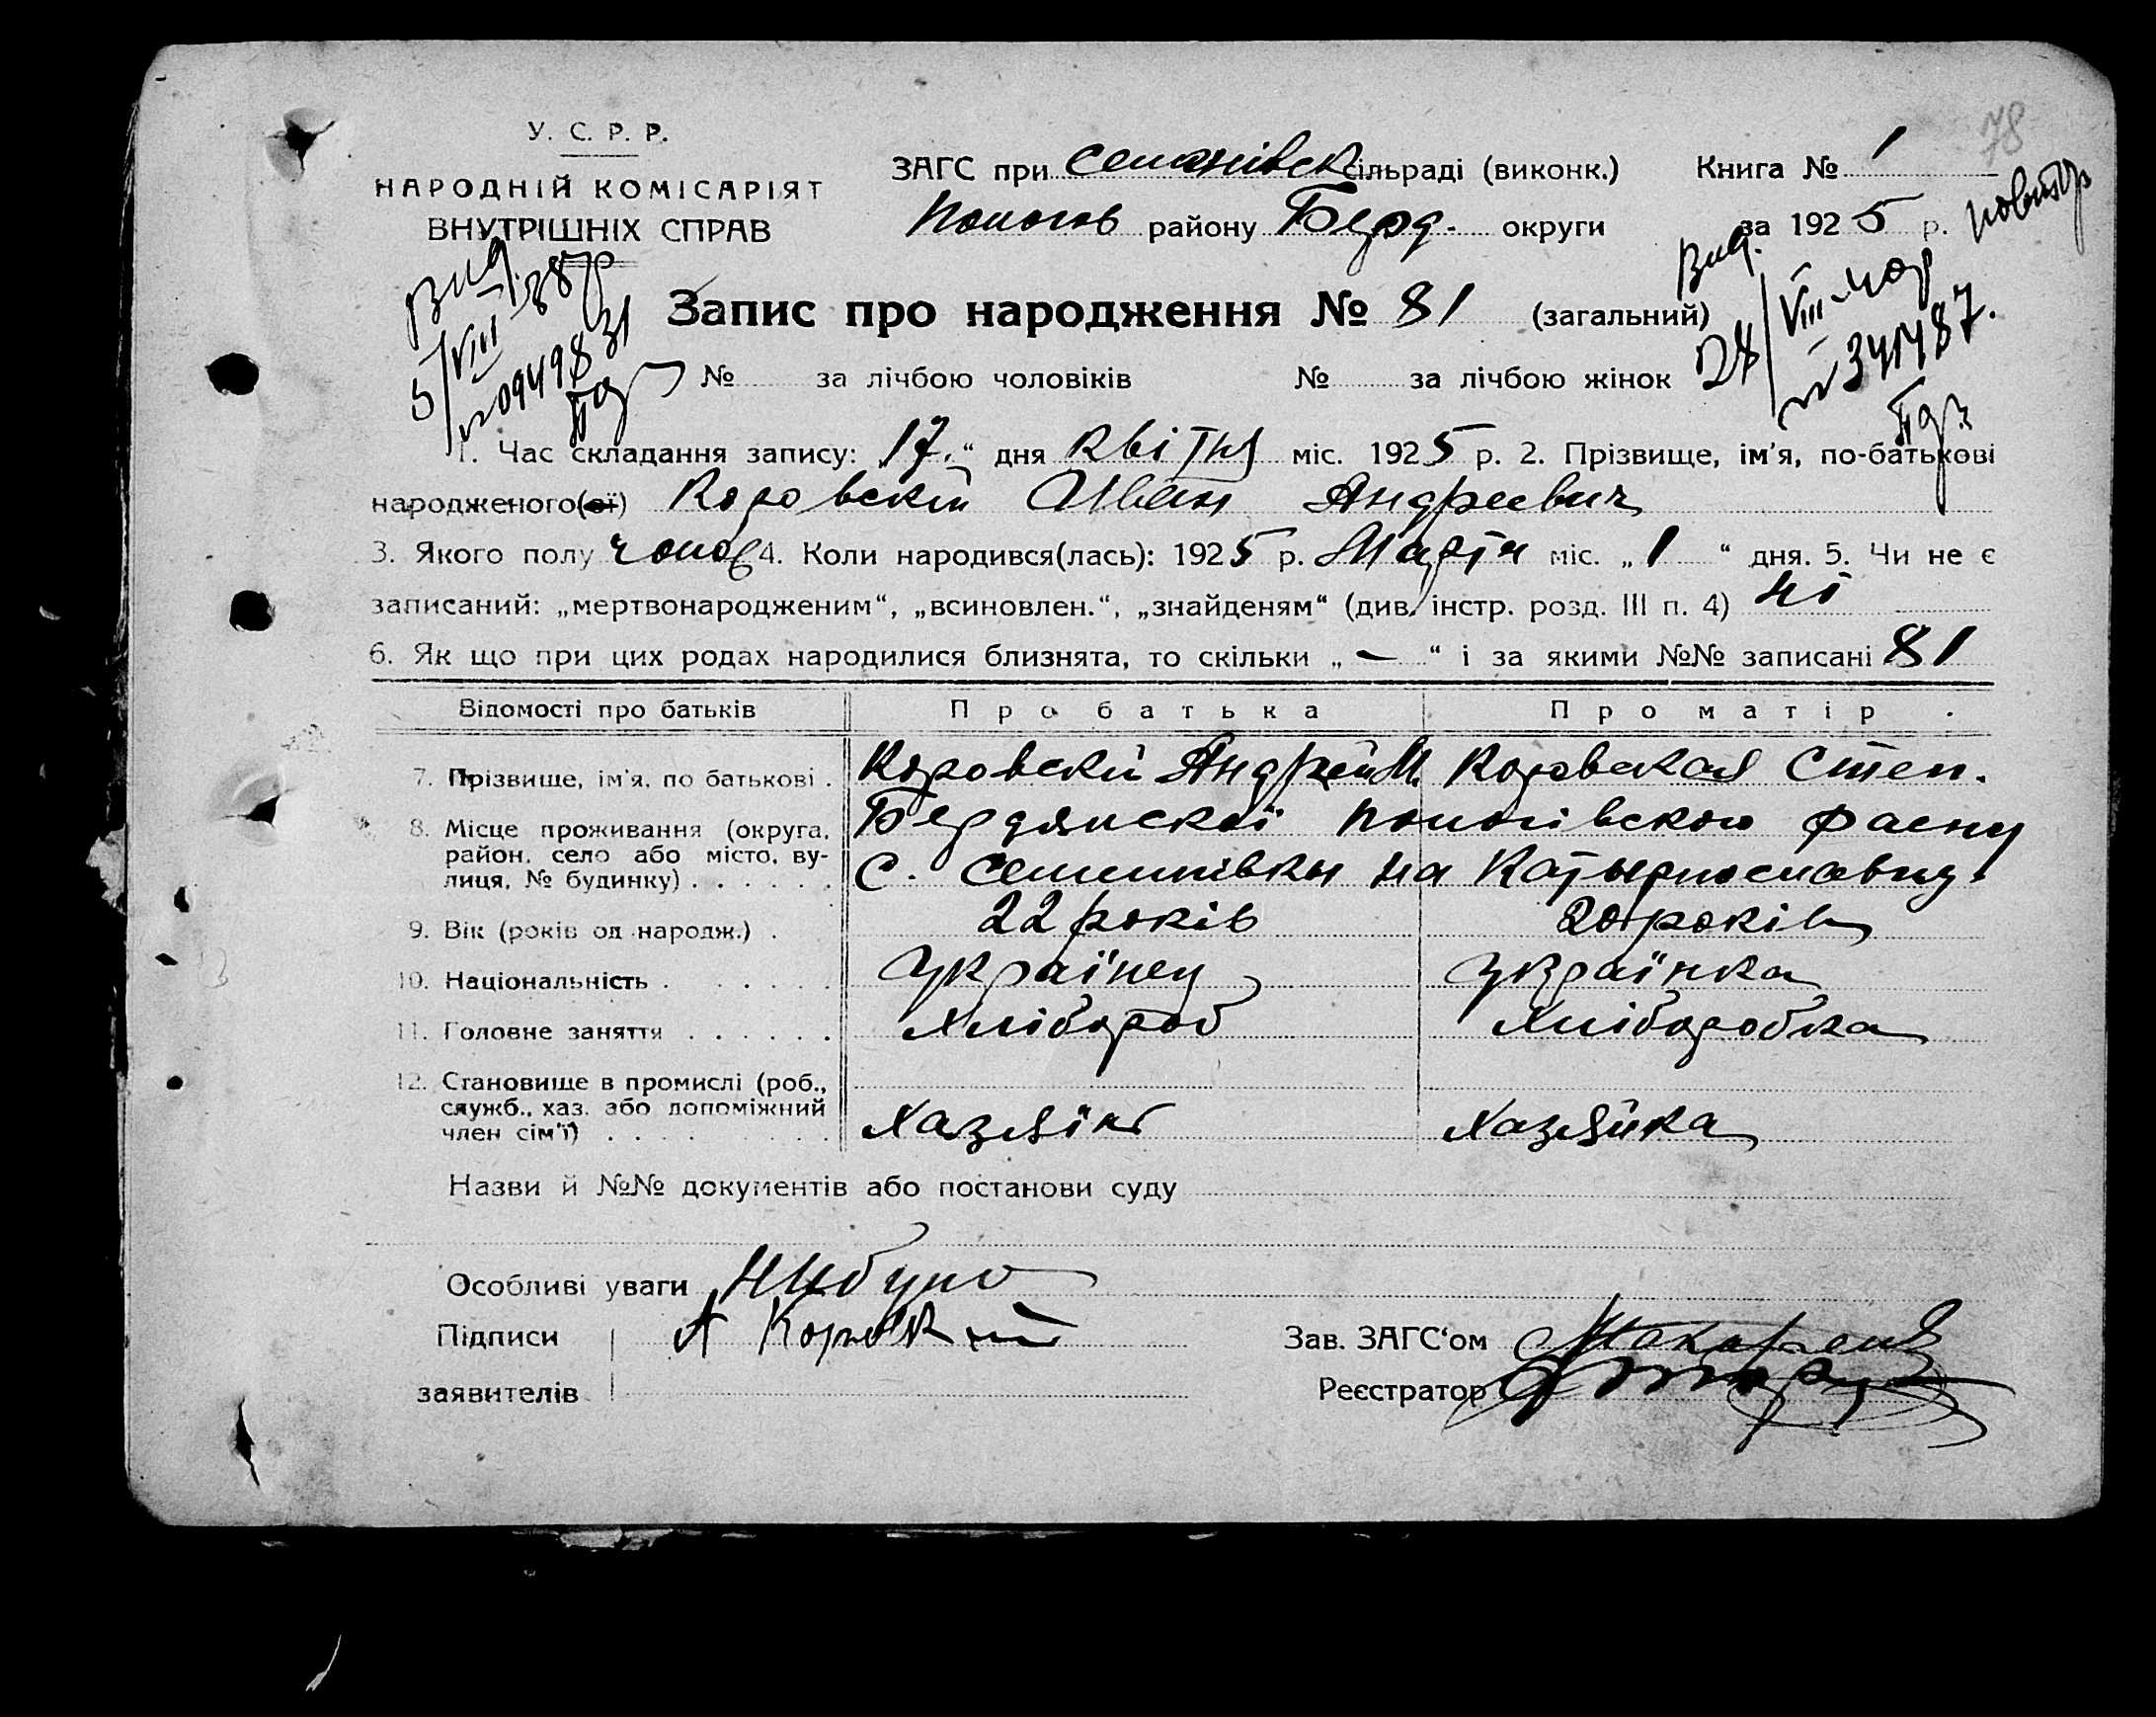 78
У. С. Р. Р.
НАРОДНІЙ КОМІСАРІЯТ
ВНУТРІШНІХ СПРАВ
ЗАГС при сільраді (виконк.) Книга № 1
Пологов району Берд. округи за 1925 р. повитор
Вид. 5/VIII-38р №09498
Вид. 28/VIII-40р №341487.
Запис про народження № 81 (загальний)
№ за лічбою чоловіків № за лічбою жінок
1. Час складання запису: 17. “ дня Квітня міс. 1925 р. 2. Прізвище, ім'я, по-батькові
народженого(ої) Коровский Иван Андреевич
3. Якого полу чолов 4. Коли народився(лась): 1925 р. Мартя міс. „1“ дня. 5. Чи не є
записаний: „мертвонародженим“, „всиновлен.“, „знайденям“ (див. інстр. розд. III п. 4) ні
6. Як що при цих родах народилися близнята, то скільки „ — “ і за якими №№ записані 81
Відомості про батьків Про батька Про матір
7. Прізвище, ім'я, по батькові . Коровский Андрей М. Коровская Степ.
8. Місце проживання (округа, район, село або місто, вулиця, № будинку) . . . . . . Бердянскої Пологівского раену
С. Семенівкы на
9. Вік (років од народж.) . 22 років 20 років
10. Національність . . . . . . Українец Українка
11. Головне заняття . . . . . . Хлібороб Хліборобка
12. Становище в промислі (роб., служб., хаз. або допоміжний член сім'ї) . . . . . . Хазяїн Хазяйка
Назви й №№ документів або постанови суду
Особливі уваги Нибуло
Підписи А Коровский Зав. ЗАГС‘ом
заявителів Реєстратор